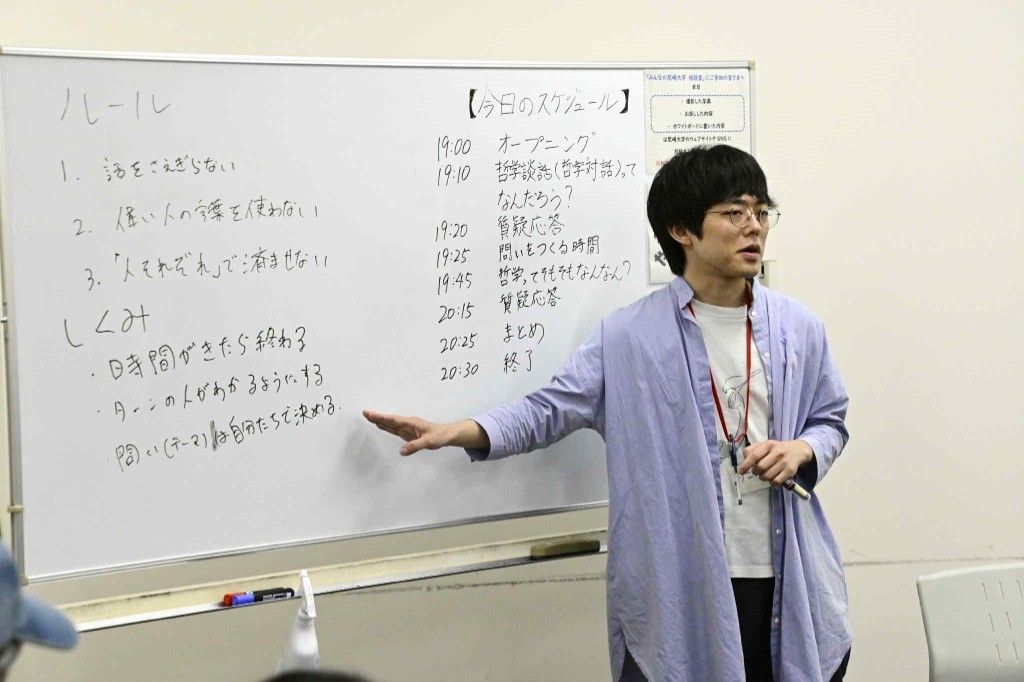 ルール
1. 話をさえぎらない
2. 偉い人の言葉を使わない
3. 「人それぞれ」で済ませない
しくみ
・時間がきたら終わる
・ターンの人がわかるようにする
・問い(テーマ)は自分たちで決める.
【今日のスケジュール】
19:00 オープニング
19:10 哲学談話(哲学対話)って
なんだろう?
19:20 質疑応答
19:25 問いをつくる時間
19:45 哲学ってそもそもなんなん?
20:15 質疑応答
20:25 まとめ
20:30 終了
「みんなの尼崎大学 相談室」にご参加の皆さまへ
本日
・撮影した写真
・お話しした内容
・ホワイトボードに書いた内容
は尼崎大学のウェブサイトやSNSに